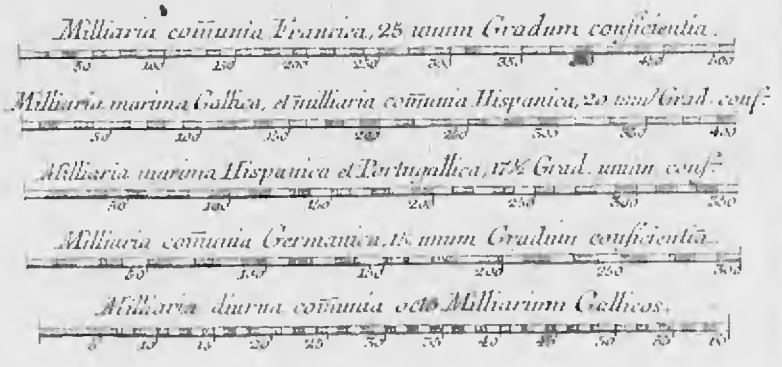 Milliaria com̄unia Francica, 25 unum Gradum conficientia.
50 100 150 200 250 300 350 400 450 500
Milliaria marina Gallica, et milliaria com̄unia Hispanica, 20 unu Grad. conf.
50 100 150 200 250 300 350 400
Milliaria marina Hispanica et Portugallica, 17½ Grad. unum conf.
50 100 150 200 250 300 350
Milliaria com̄unia Germanica, 15 unum Gradum conficientia.
50 100 150 200 250 300
Milliaria diurna com̄unia octo Milliarium Gallicos.
5 10 15 20 25 30 35 40 45 50 55 60